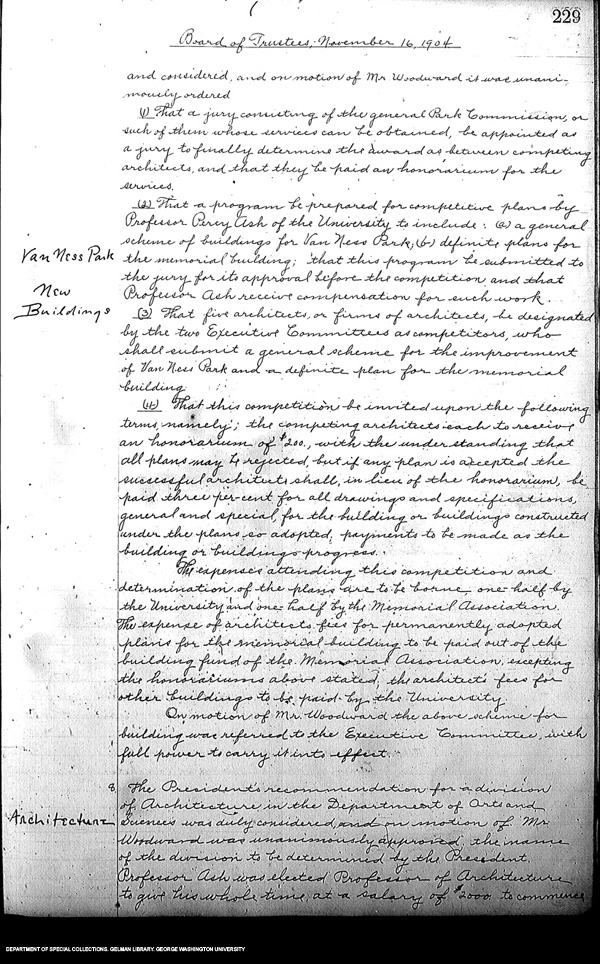 229
Board of Trustees, November 16, 1904
and considered, and on motion of Mr Woodward it was unani-
mously ordered
(1) That a jury consisting of the general Park Commission, or
such of them whose services can be obtained, be appointed as
a jury to finally determine the award as between competing
architects, and that they be paid an honorarium for the
services.
(2) That a program be prepared for competitive plans by
Professor Percy Ash of the University to include: (a) a general
scheme of buildings for Van Ness Park; (b) definite plans for
the memorial building; that this program be submitted to
the jury for its approval before the competition, and that
Professor Ash receive compensation for such work.
Van Ness Park
New
Buildings
(3) That five architects, or firms of architects, be designated
by the two Executive Committees as competitors, who
shall submit a general scheme for the improvement
of Van Ness Park and a definite plan for the memorial
building
(4) That this competition be invited upon the following
terms, namely; the competing architects each to receive
an honorarium of $200., with the understanding that
all plans may be rejected, but if any plan is accepted the
successful architect shall, in lieu of the honorarium, be
paid three per-cent for all drawings and specifications,
general and special, for the building or buildings constructed
under the plans so adopted, payments to be made as the
building or buildings progress.
The expenses attending this competition and
determination of the plans are to be borne one half by
the University and one half by the Memorial Association.
The expense of architects fees for permanently adopted
plans for the memorial building to be paid out of the
building fund of the Memorial Association, excepting
the honorariums above stated; the architect's fees for
other buildings to be paid by the University
On motion of Mr. Woodward the above scheme for
building was referred to the Executive Committee, with
full power to carry it into effect.
8 The President's recommendation for a division
of Architecture in the Department of Arts and
Architecture
Sciences was duly considered, and on motion of Mr
Woodward was unanimously approved, the name
of the division to be determined by the President,
Professor Ash was elected Professor of Architecture
to give his whole time, at a salary of $2000. to commence
DEPARTMENT OF SPECIAL COLLECTIONS. GELMAN LIBRARY. GEORGE WASHINGTON UNIVERSITY